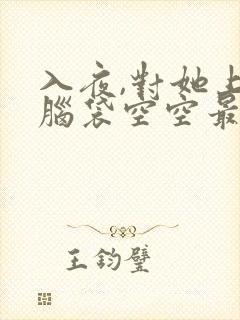 入夜,對她上
腦袋空空最
王鈞璧